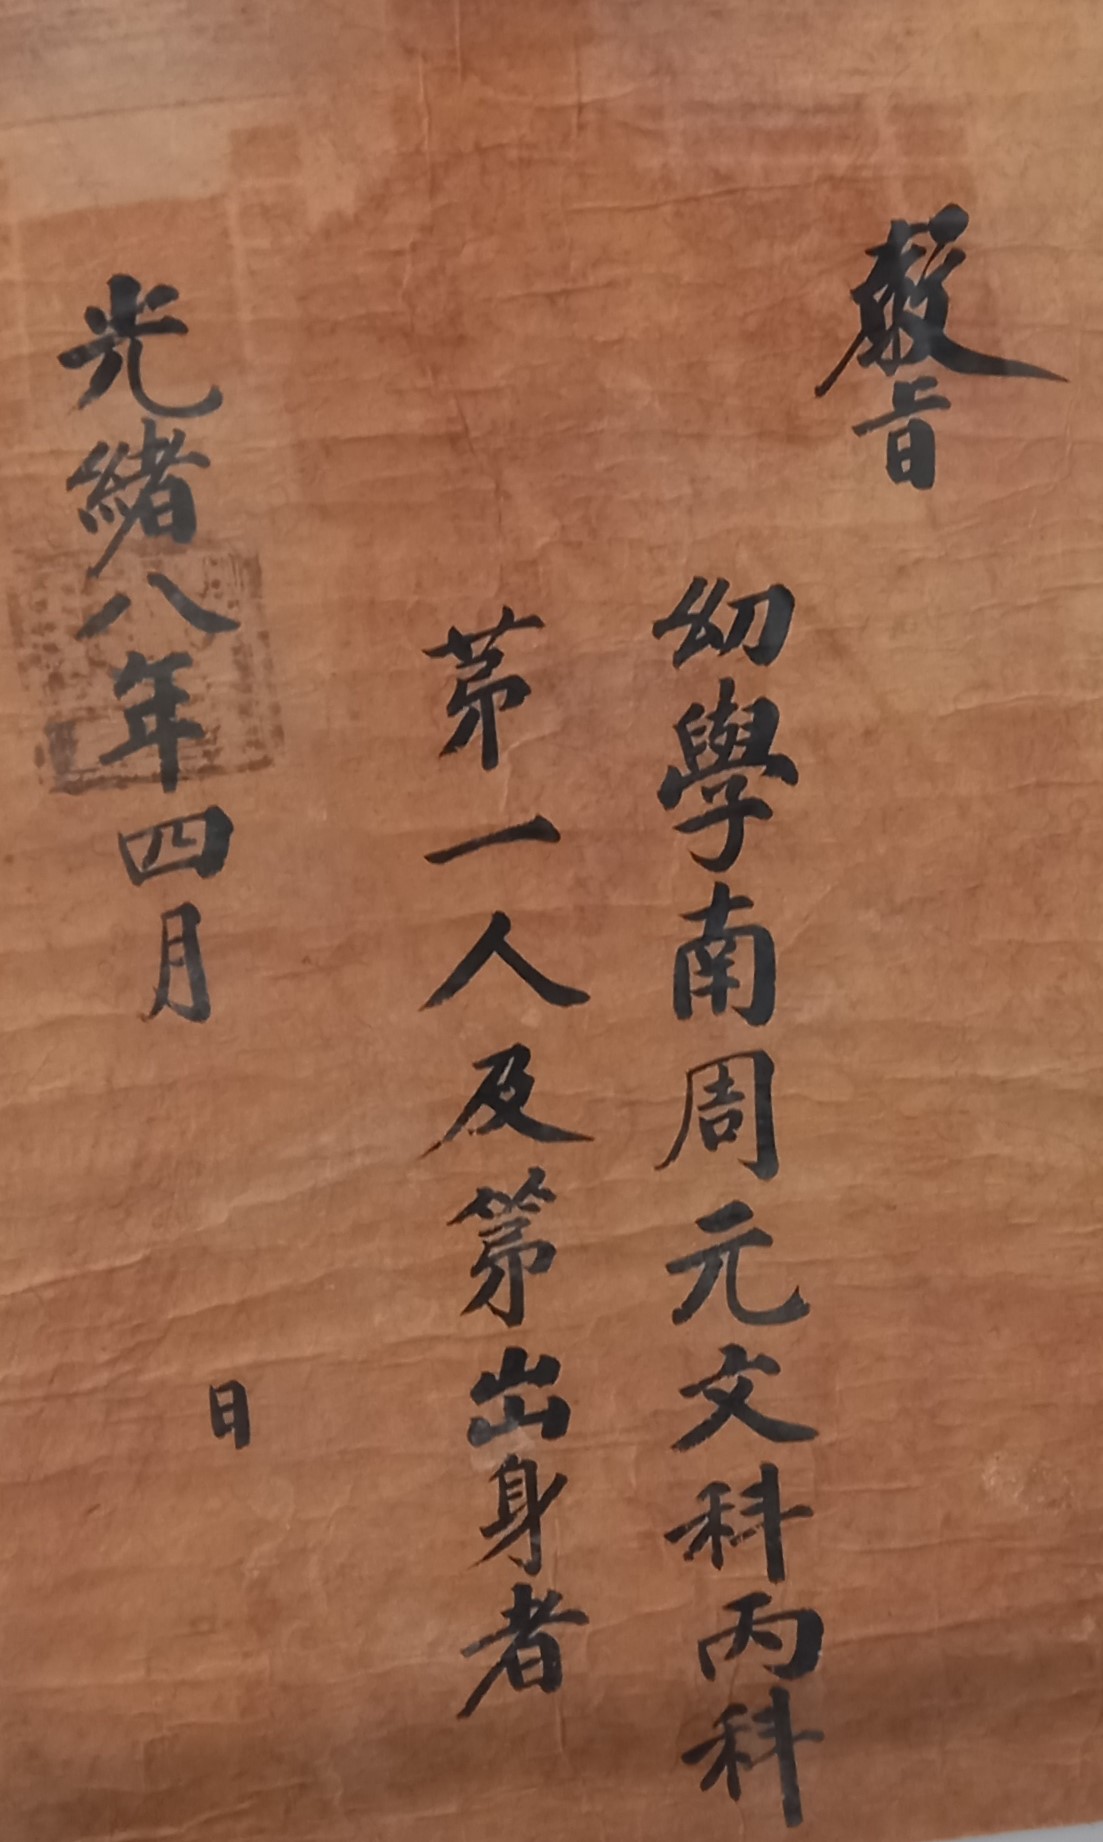 敎旨
幼學南周元文科丙科
苐一人及第出身者
光緖八年四月 日